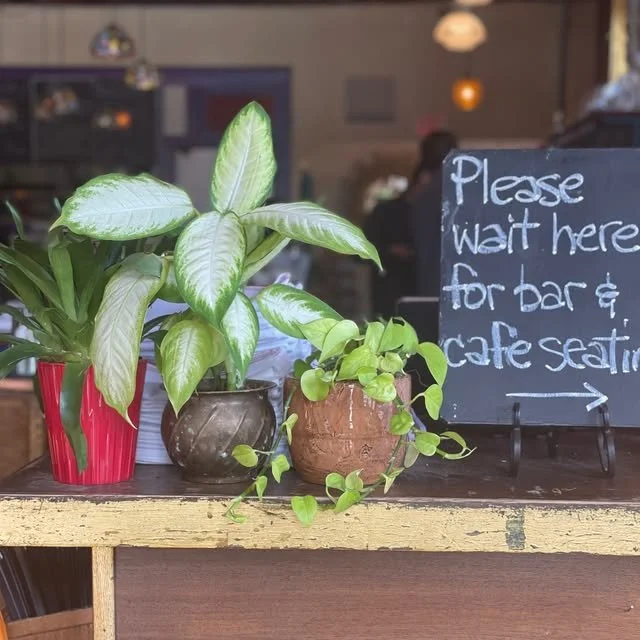 Please
wait here
for bar &
cafe seatin